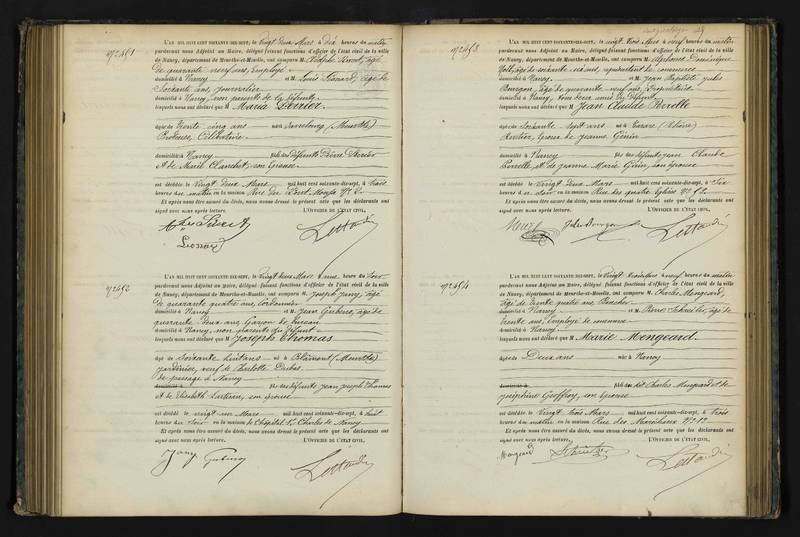 N° 451
L'AN MIL HUIT CENT SOIXANTE-DIX-SEPT, le vingt deux Mars à dix heures du matin
pardevant nous Adjoint au Maire, délégué faisant fonctions d'officier de l'état civil de la ville
de Nancy, département de Meurthe-et-Moselle, ont comparu M. âgé
de quarante neuf ans, Employé
domicilié à Nancy et M. Louis Lienard, âgé de
Soixante ans, journalier
domicilié à Nancy, non parents de la défunte
lesquels nous ont déclaré que M Maria Perrier
âgée de Trente cinq ans née à (Meurthe)
Brodeuse, Célibataire
domiciliée à Nancy fille des défunts Perrier
et de Marie Blanchot, son épouse
est décédée le vingt deux Mars mil huit cent soixante-dix-sept, à trois
heures du matin en la maison Rue du Pont-Mouja N°
Et après nous être assuré du décès, nous avons dressé le présent acte que les déclarants ont
signé avec nous après lecture. L'OFFICIER DE L'ÉTAT CIVIL,
N° 452
L'AN MIL HUIT CENT SOIXANTE-DIX-SEPT, le vingt deux Mars à une heure du soir
pardevant nous Adjoint au Maire, délégué faisant fonctions d'officier de l'état civil de la ville
de Nancy, département de Meurthe-et-Moselle, ont comparu M. Joseph Jany, âgé
de quarante quatre ans, Cordonnier
domicilié à Nancy et M. Jean âgé de
quarante deux ans Garçon de bureau
domicilié à Nancy, non parents du défunt
lesquels nous ont déclaré que M Joseph Thomas
âgé de Soixante huit ans né à Blâmont (Meurthe)
jardinier, veuf de Charlotte Dubas
de passage à Nancy
domicilié à fils des défunts Jean Joseph Thomas
et de Elisabeth son épouse
est décédé le vingt un Mars mil huit cent soixante-dix-sept, à huit
heures du soir en la maison de l'hôpital St Charles de Nancy
Et après nous être assuré du décès, nous avons dressé le présent acte que les déclarants ont
signé avec nous après lecture. L'OFFICIER DE L'ÉTAT CIVIL,
Jany
N° 453
L'AN MIL HUIT CENT SOIXANTE-DIX-SEPT, le vingt trois Mars à neuf heures du matin
pardevant nous Adjoint au Maire, délégué faisant fonctions d'officier de l'état civil de la ville
de Nancy, département de Meurthe-et-Moselle, ont comparu M. Alphonse Dominique
âgé de soixante six ans, représentant de commerce
domicilié à Nancy et M. Jean Baptiste Jules
Bourgon, âgé de quarante neuf ans, Propriétaire
domicilié à Nancy, tous deux amis du défunt
lesquels nous ont déclaré que M Jean Claude Perelle
âgé de Soixante sept ans né à
Rentier, époux de Jeanne Génin
domicilié à Nancy fils des défunts Jean Claude
Perrelle et de Jeanne Marie Génin, son épouse
est décédé le vingt deux Mars mil huit cent soixante-dix-sept, à six
heures du soir en la maison Rue des quatre Eglises N°
Et après nous être assuré du décès, nous avons dressé le présent acte que les déclarants ont
signé avec nous après lecture. L'OFFICIER DE L'ÉTAT CIVIL,
N° 454
L'AN MIL HUIT CENT SOIXANTE-DIX-SEPT, le vingt trois Mars à neuf heures du matin
pardevant nous Adjoint au Maire, délégué faisant fonctions d'officier de l'état civil de la ville
de Nancy, département de Meurthe-et-Moselle, ont comparu M. Charles Mengeard,
âgé de trente quatre ans, Boucher
domicilié à Nancy et M. Pierre âgé de
trente ans, Employé de commerce
domicilié à Nancy
lesquels nous ont déclaré que M Marie Mengeard
âgée de Deux ans née à Nancy
domicilié à fille du dit Charles Mengeard et de
Joséphine Geoffroy, son épouse
est décédée le vingt trois Mars mil huit cent soixante-dix-sept, à trois
heures du matin en la maison Rue des Maréchaux N°
Et après nous être assuré du décès, nous avons dressé le présent acte que les déclarants ont
signé avec nous après lecture. L'OFFICIER DE L'ÉTAT CIVIL,
Mengeard